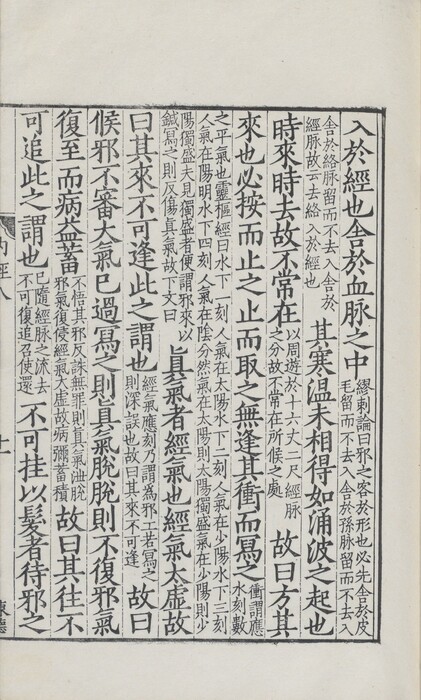 入於經也舍於血脉之中繆刺論曰邪之客於形也必先舍於皮毛留而不去入舍於孫脉留而不去入
舍於絡脉留而不去入舍於經脉故云去絡入於經也其寒温未相得如涌波之起也
時來時去故不常在以周遊於十六丈二尺經脉之分故不常在所候之處故曰方其
來也必按而止之止而取之無逢其衝而寫之衝謂應水刻數
之平氣也靈樞經曰水下一刻人氣在太陽水下二刻人氣在少陽水下三刻人氣在陽明水下四刻人氣在陰分然氣在太陽則太陽獨盛氣在少陽則少
陽獨盛夫見獨盛者便謂邪來以鍼寫之則反傷真氣故下文曰真氣者經氣也經氣太虚故
曰其來不可逢此之謂也經氣應刻乃謂爲邪工若寫之則深誤也故曰其來不可逢故曰
候邪不審大氣已過寫之則真氣脫脫則不復邪氣
復至而病益蓄不悟其邪反誅無罪則真氣泄脫邪氣復侵經氣大虚故病彌蓄積故曰其往不
可追此之謂也已隨經脉之流去不可復追召使還不可挂以髮者待邪之